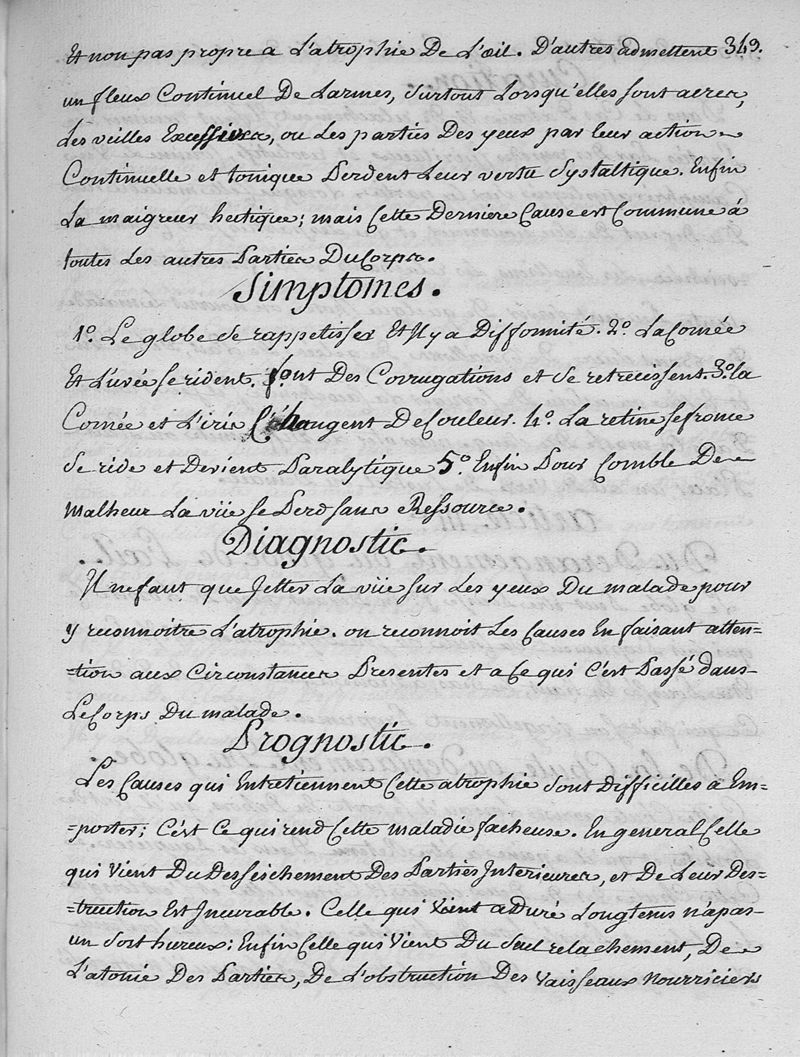 Et non pas propre a L'atrophie De L'œil. D'autres admettent 349.
un fleux Continuel De Larmes, surtout Lorsqu'elles sont acres,
Les veilles Excessives, ou Les parties Des yeux par leur action
Continuelle et tonique Perdent Leur vertu Systaltique. Enfin
La maigreur hectique; mais Cette Derniere Cause est Commune à
toutes Les autres Parties Du Corps.
Simptomes.
1º. Le globe se rappetisser Et Il y a Difformité. 2º. La Cornée
Et L'uvée se rident. font Des Corrugations et se retrecissent. 3º. la
Cornée et L'iris Changent De Couleur. 4º. La retine se fronce
se ride et Devient Paralytique 5º Enfin Pour Comble De
malheur La vüe se Perd sans Ressource.
Diagnostic.
Il ne faut que Jetter La vüe sur Les yeux Du malade pour
y reconnoitre L'atrophie. on reconnoit Les Causes En faisant atten=
=tion aux Circonstances Presentes et a Ce qui C'est Passé dans
Le Corps Du malade.
Prognostic.
Les Causes qui Entretiennent Cette atrophie sont Difficilles a Em=
=porter; C'est Ce qui rend Cette maladie facheuse. En general Celle
qui Vient Du Desseichement Des Parties Interieures, et De Leur Des=
=truction Est Incurable. Celle qui Vient a Duré Longtems n'a pas
un sort hureux: Enfin Celle qui Vient Du Seul relachement, De
L'atonie Des Parties, De L'obstruction Des Vaisseaux nourriciers